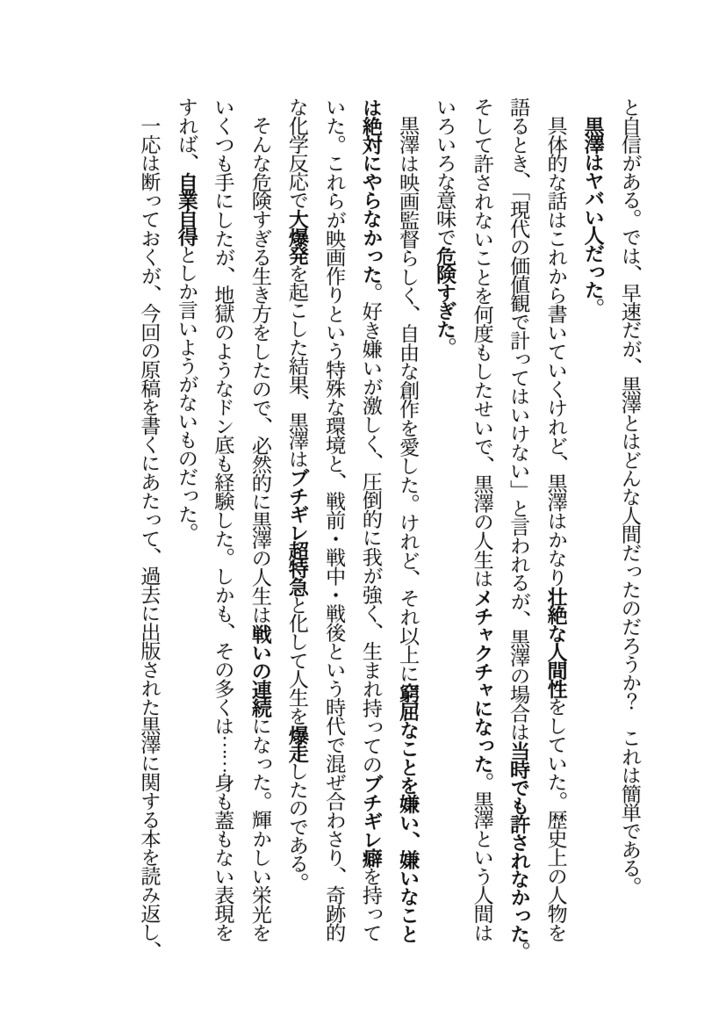 と自信がある。では、早速だが、黒澤とはどんな人間だったのだろうか？　これは簡単である。
黒澤はヤバい人だった。
具体的な話はこれから書いていくけれど、黒澤はかなり壮絶な人間性をしていた。歴史上の人物を
語るとき、「現代の価値観で計ってはいけない」と言われるが、黒澤の場合は当時でも許されなかった。
そして許されないことを何度もしたせいで、黒澤の人生はメチャクチャになった。黒澤という人間は
いろいろな意味で危険すぎた。
黒澤は映画監督らしく、自由な創作を愛した。けれど、それ以上に窮屈なことを嫌い、嫌いなこと
は絶対にやらなかった。好き嫌いが激しく、圧倒的に我が強く、生まれ持ってのブチギレ癖を持って
いた。これらが映画作りという特殊な環境と、戦前・戦中・戦後という時代で混ぜ合わさり、奇跡的
な化学反応で大爆発を起こした結果、黒澤はブチギレ超特急と化して人生を爆走したのである。
そんな危険すぎる生き方をしたので、必然的に黒澤の人生は戦いの連続になった。輝かしい栄光を
いくつも手にしたが、地獄のようなドン底も経験した。しかも、その多くは……身も蓋もない表現を
すれば、自業自得としか言いようがないものだった。
一応は断っておくが、今回の原稿を書くにあたって、過去に出版された黒澤に関する本を読み返し、